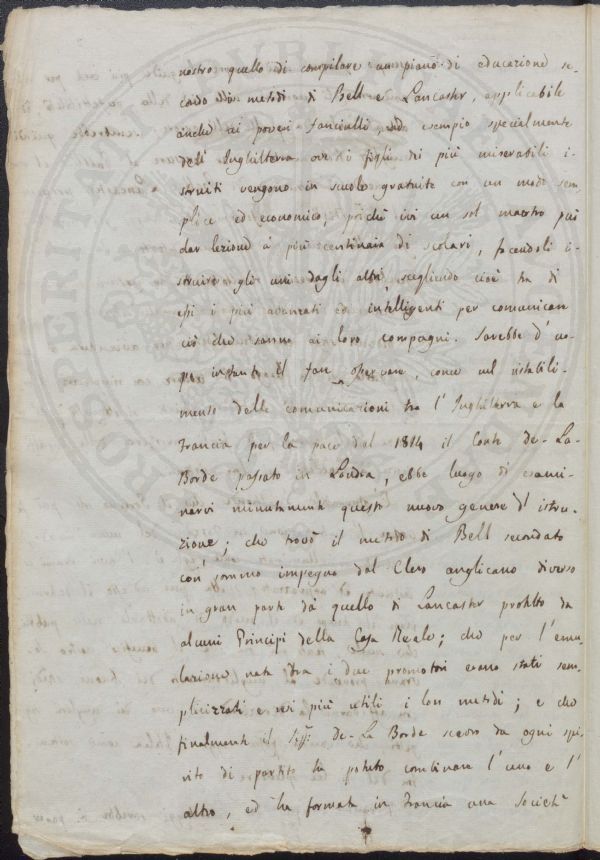 nostro quello di compilare un piano di educazione se-
condo i metodi di Bell e Lancaster, applicabile
anche ai poveri fanciulli ad esempio specialmente
dell' Inghilterra ove i figli dei più miserabili i-
struiti vengono in scuole gratuite con un modo sem-
plice ed economico, poichè ivi un sol maestro può
dar lezione a più centinaia di scolari, facendoli i-
struire gli uni dagli altri, scegliendo cioè tra di
essi i più avanzati ed intelligenti per comunicare
ciò che sanno ai loro compagni. Sarebbe d' uo-
po intanto il far osservare, come nel ristabili-
mento delle comunicazioni tra l' Inghilterra e la
Francia per la pace del 1814 il Conte de-La-
Borde passato in Londra, ebbe luogo di esami-
narvi minutamente questo nuovo genere d' istru-
zione; che trovò il metodo di Bell secondato
con sommo impegno dal Clero anglicano diverso
in gran parte da quello di Lancaster protetto da
alcuni Principi della Casa Reale; che per l' emu-
lazione nata tra i due promotori erano stati sem-
plicizzati e resi più utili i loro metodi; e che
finalmente il de-La Borde scevro da ogni spi-
rito di partito ha potuto combinare l' uno e l'
altro, ed ha formata in Francia una Società